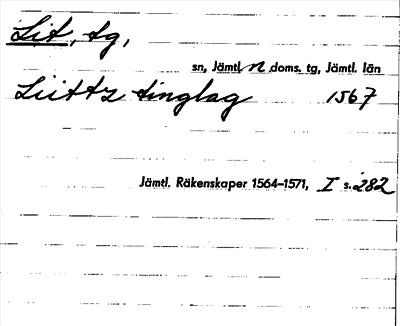 Lit, tg,
sn, Jämtl. n doms. tg, Jämtl. län
Liittz tinglag 1567
Jämtl. Räkenskaper 1564-1571, I s. 282